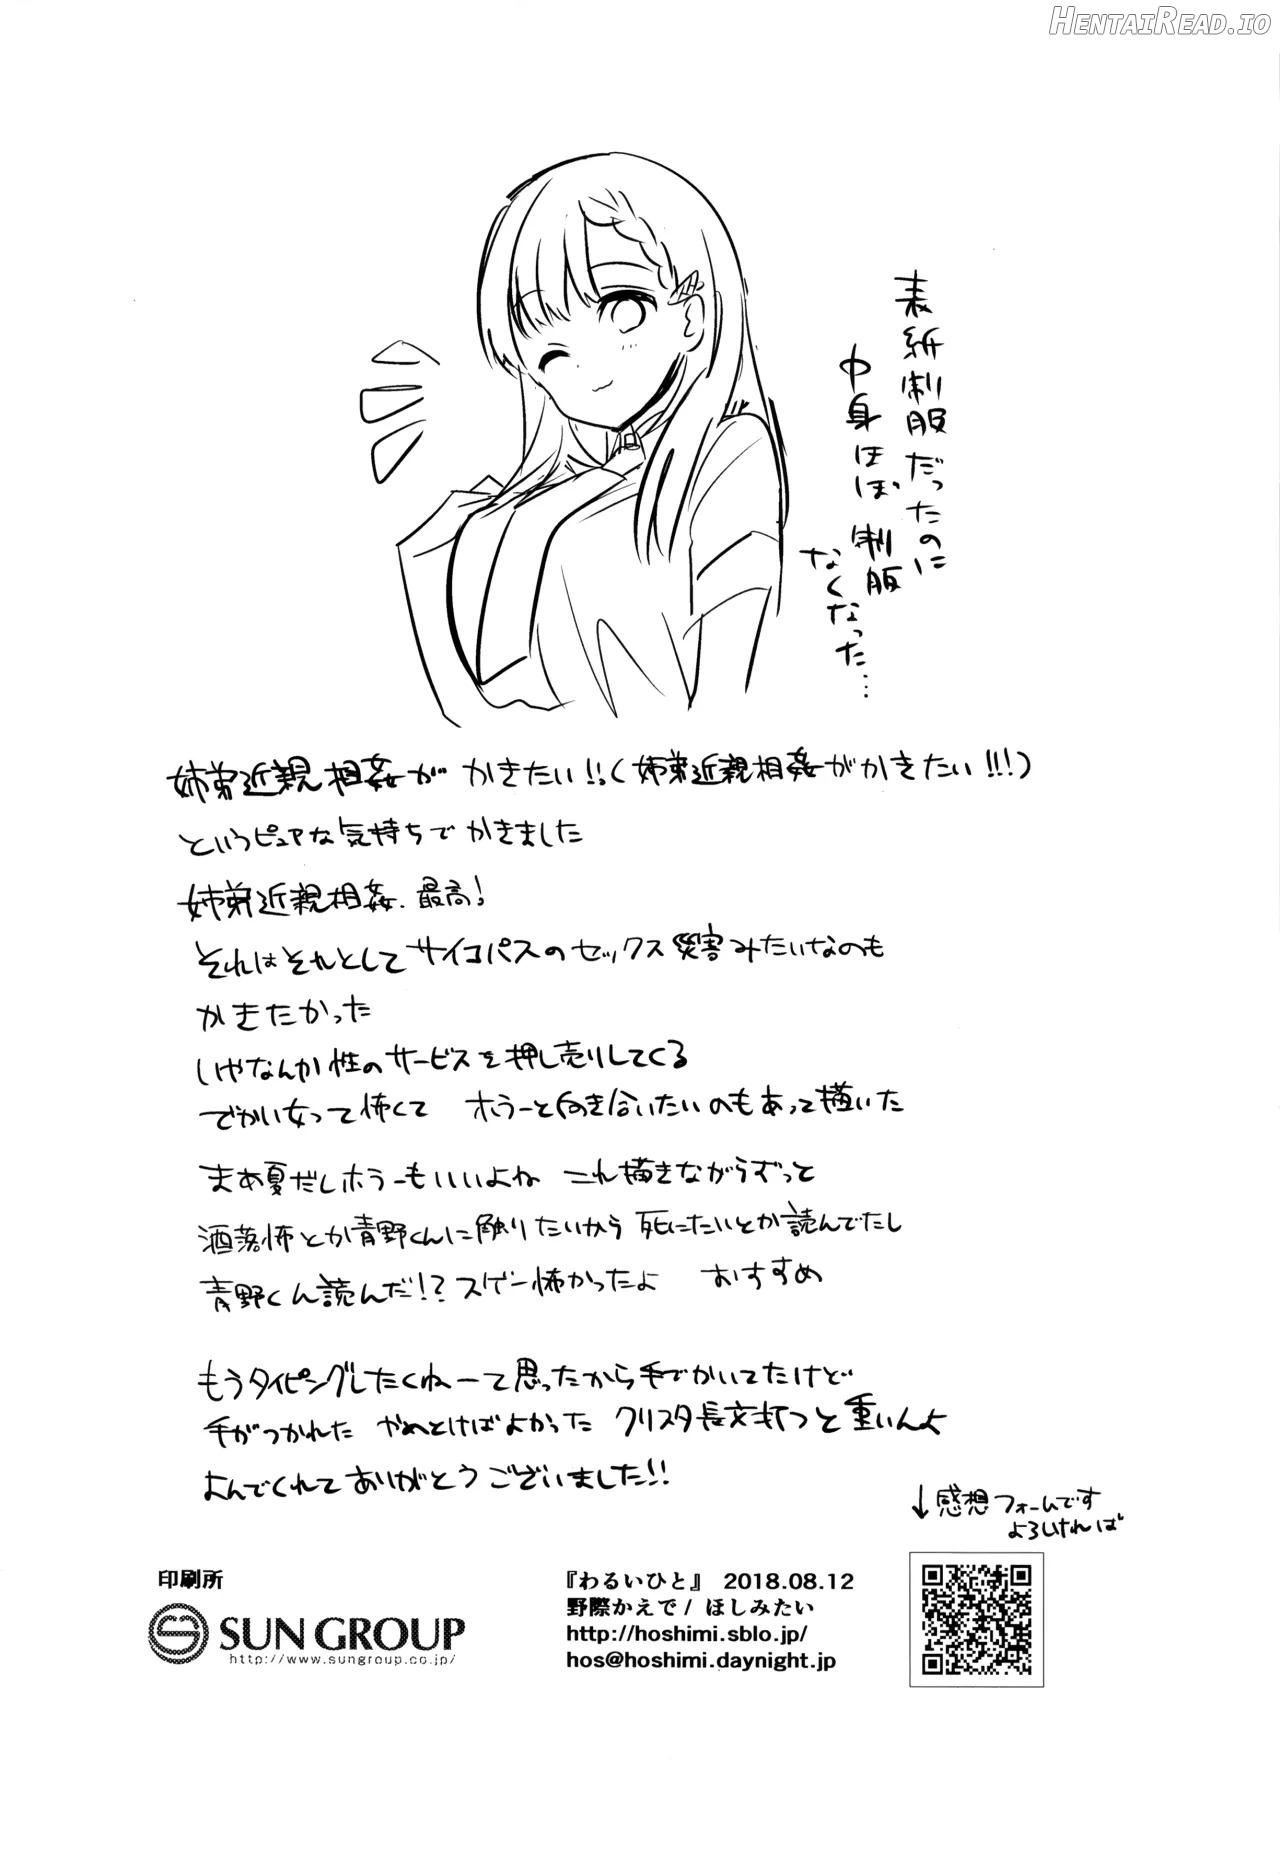 HENTAIREAD.IO
表紙制服だったのに
中身ほぼ制服
なくなった…
姉弟近親相姦がかきたい!!(姉弟近親相姦がかきたい!!!)
というピュアな気持ちでかきました
姉弟近親相姦、最高!
それはそれとしてサイコパスのセックス災害みたいなのも
かきたかった
いやなんか性のサービスを押し売りしてくる
でかい女って怖くて ホラーと向き合いたいのもあって描いた
まあ夏だしホラーもいいよね これ描きながらずっと
洒落怖とか青野くんに触りたいから死にたいとか読んでたし
青野くん読んだ!?スゲー怖かったよ おすすめ
もうタイピングしたくねーて思ったから手でかいてたけど
手がつかれた やめとけばよかった クリスタ長文打つと重いんよ
よんでくれてありがとうございました!!
↓感想フォームです
よろしければ
印刷所
SUN GROUP
http://www.sungroup.co.jp/
『わるいひと』 2018.08.12
野際かえで/ ほしみたい
http://hoshimi.sblo.jp/
hos@hoshimi.daynight.jp